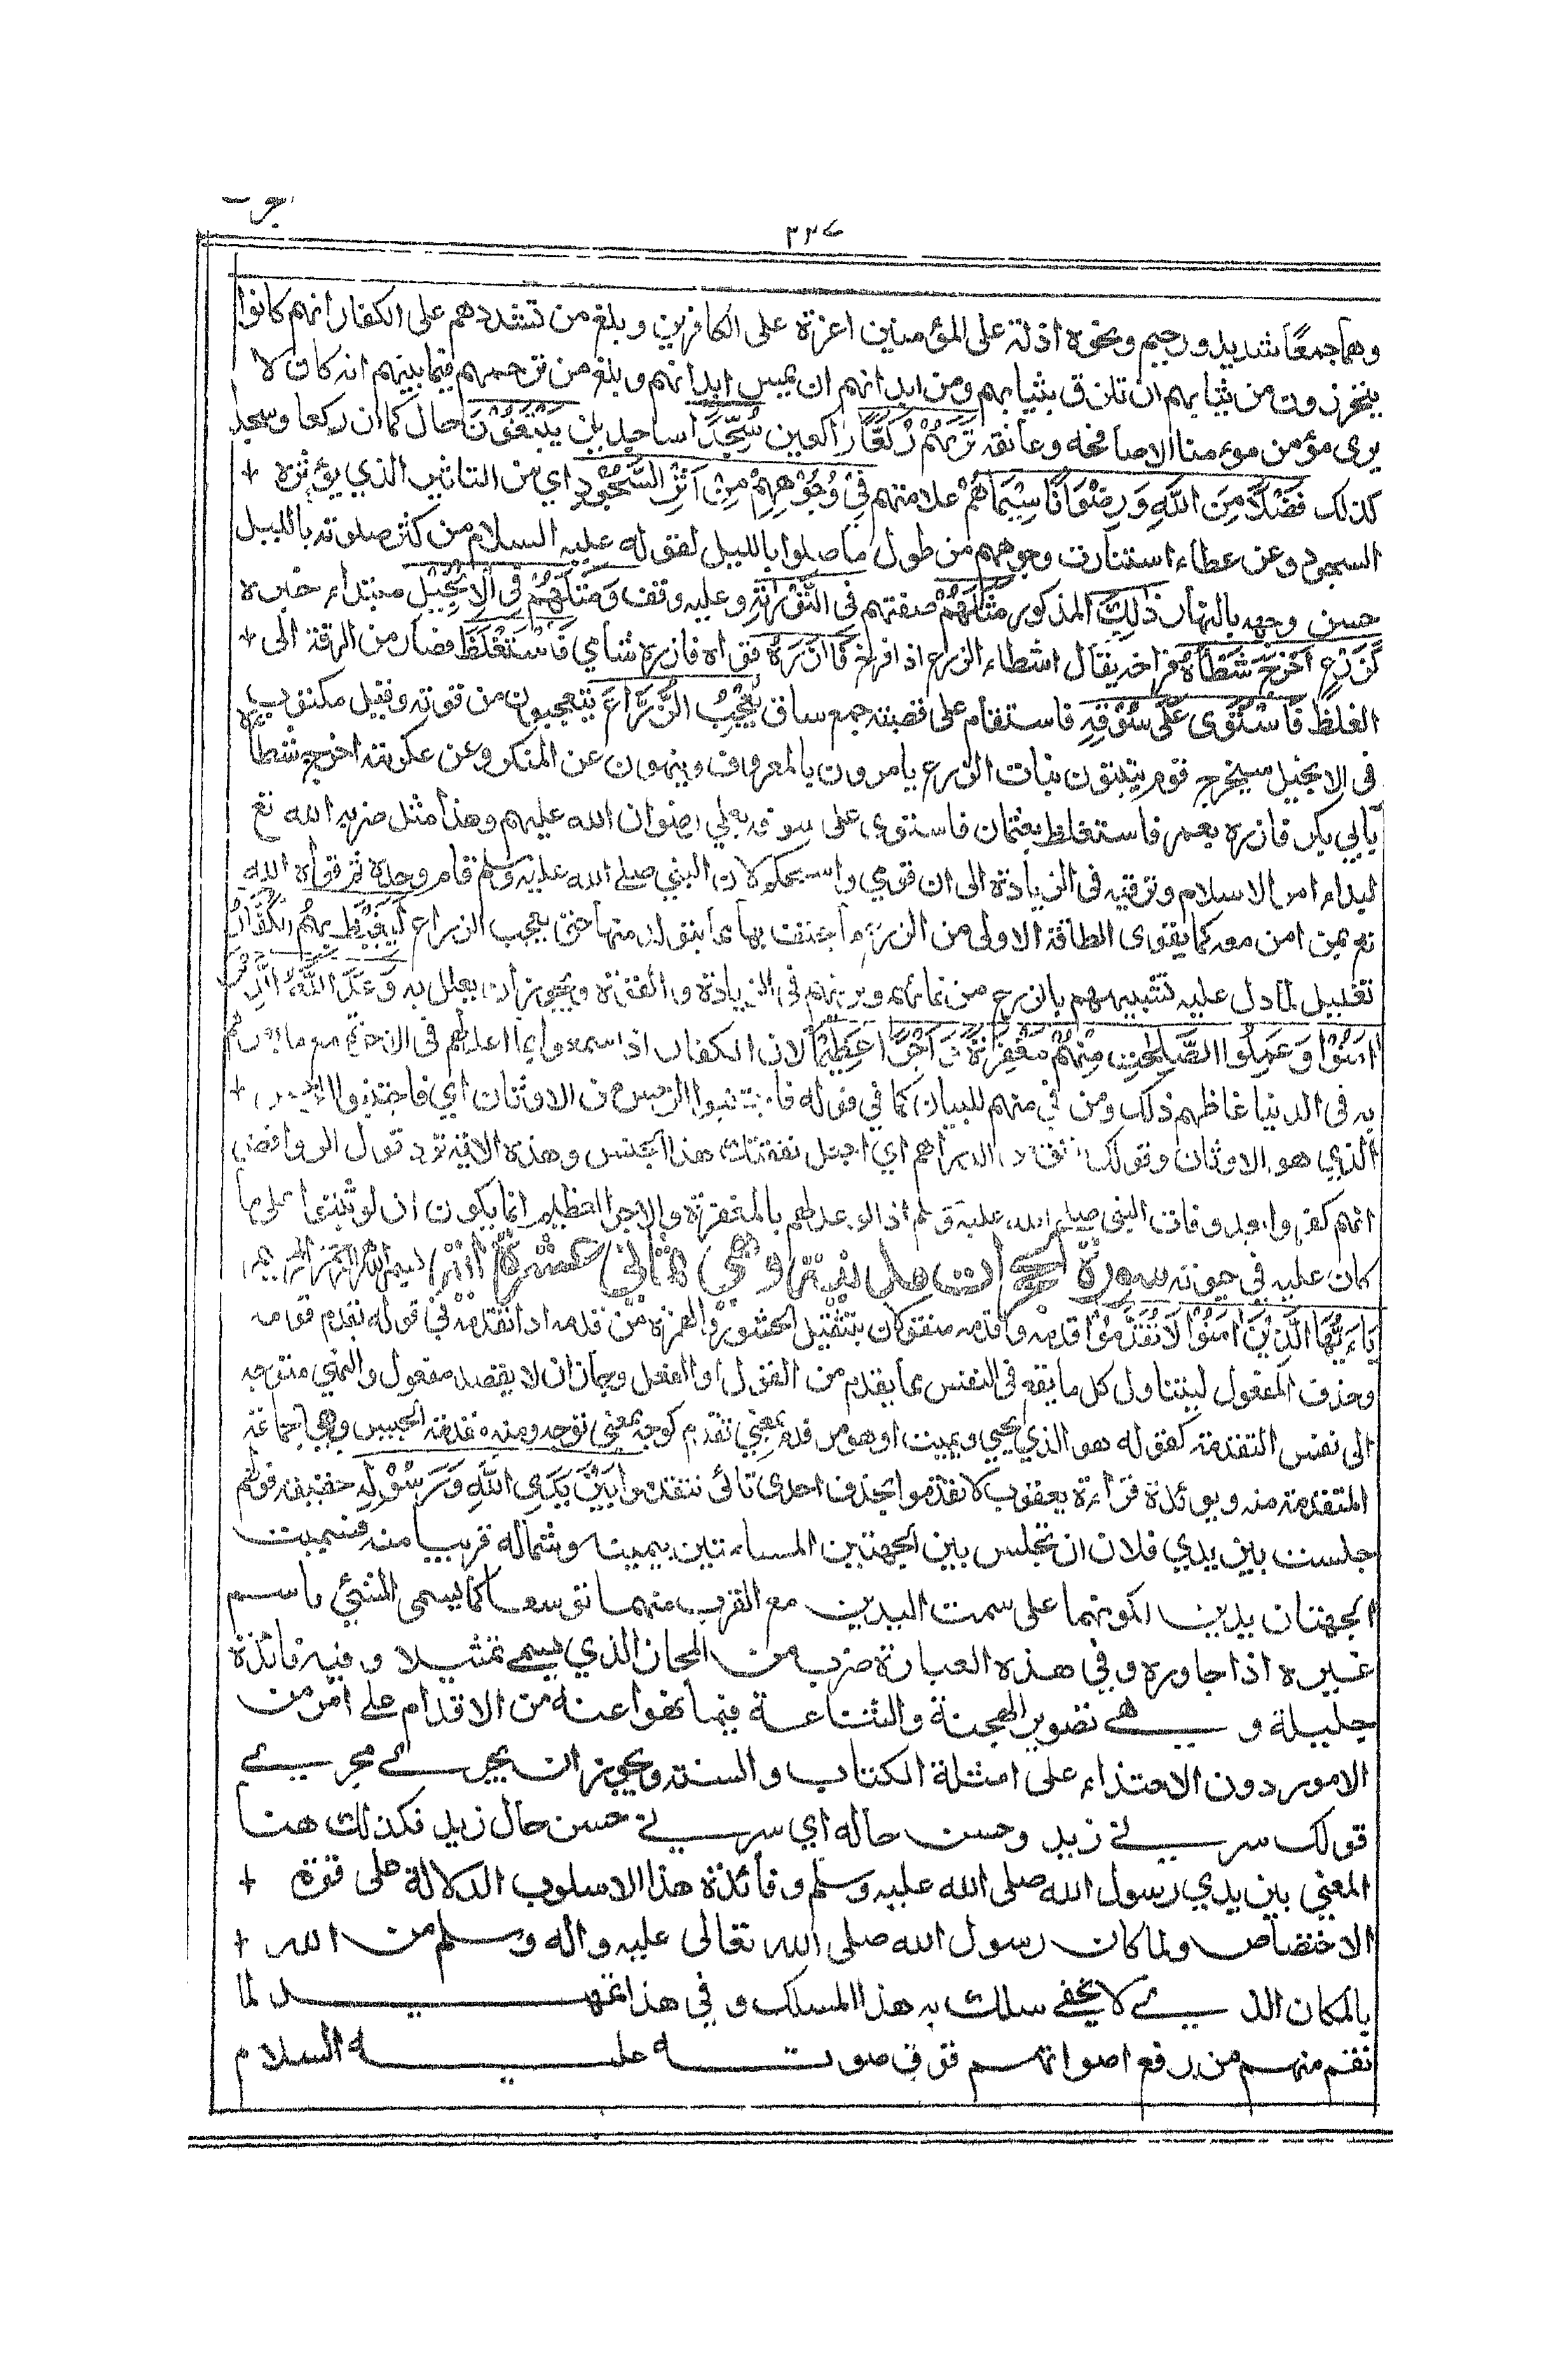 ٣٣٧
وهما جمعا شديد ورحيم ونحوه اذلة على المؤمنين اعزة على الكافرين و بلغ من تشددهم على الكفار انهم كانوا
يتحرزون من ثيابهم ان تلزق بثيابهم ومن ابدانهم ان يمس ابدانهم و بلغ من ترحمهم فيما بينهم انه كان لا
يرى مؤمن مومنا الا صافحه وعانقه تَرٰىهُمْ رُكَّعًا راكعين سُجَّدًا ساجدين يَبْتَغُوْنَ حال كما ان ركعا وسجدا
كذلك فَضْلًا مِّنَ اللّٰهِ وَ رِضْوَانًا سِيْمَاهُمْ علامتهم فِيْ وُجُوْهِهِمْ مِنْ اَثَرِ السُّجُوْدِ اي من التاثير الذي يؤثره +
السجود وعن عطاء استنارت وجوههم من طول ما صلوا بالليل لقوله عليه السلام من كثر صلوته بالليل
حسن وجهه بالنهار ذٰلِكَ المذكور مَثَلُهُمْ صفتهم فِى التَّوْرٰىةِ وعليه وقف وَمَثَلُهُمْ فِى الْاِنْجِيْلِ مبتداء خبره
كَزَرْعٍ اَخْرَجَ شَطْاَهٗ فراخه يقال اشطاء الزرع اذا افرخ فَاٰزَرَهٗ قواه فازره شامي فَاسْتَغْلَظَ فصار من الرقة الى +
الغلظ فَاسْتَوٰى عَلٰى سُوْقِهٖ فاستقام على قصبته جمع ساق يُعْجِبُ الزُّرَّاعَ يتعجبون من قوته وقيل مكتوب
فى الانجيل سيخرج قوم ينبتون نبات الزرع يامرون بالمعروف وينهون عن المنكر وعن عكرمة اخرج شطاه
بابي بكر فازره بعمر فاستغلظ بعثمان فاستوى على سوقه بعلي رضوان الله عليهم وهذا مثل ضربه الله تع
لبداء امر الاسلام وترقيه فى الزيادة الى ان قوي واستحكم لان النبي صلے الله عليه وسلم قام وحده ثم قواه الله
تع بمن امن معه كما يقوى الطاقة الاولى من الزرع ما يحتف بها مما يتولد منها حتى يعجب الزراع لِيَغِيْظَ بِهِمُ الْكُفَّارَ
تعليل لما دل عليه تشبيههم بالزرع من نمائهم وترقيهم فى الزيادة والقوة ويجوز ان يعلل به وَعَدَ اللّٰهُ الَّذِيْنَ
اٰمَنُوْا وَ عَمِلُوا الصّٰلِحٰتِ مِنْهُمْ مَّغْفِرَةً وَّ اَجْرًا عَظِيْمًا لان الكفار اذا سمعوا بما اعد لهم فى الاخرة مع ما يعزهم
به فى الدنيا غاظهم ذلك ومن في منهم للبيان كما في قوله فاجتنبوا الرجس من الاوثان اي فاجتنبوا الرجس +
الذي هو الاوثان وقولك انفق من الدراهم اي اجعل نفقتك هذا الجنس وهذه الاية ترد قول الروافض
انهم كفروا بعد وفات النبي صلے الله عليه وسلم اذ الوعد لهم بالمغفرة والاجر العظيم انما يكون ان لو ثبتوا على ما
كان عليه في حيوته سورة الحجرات مدنية وهي ثماني عشرة اية بسم الله الرحمن الرحيم
يٰاَيُّهَا الَّذِيْنَ اٰمَنُوْا لَا تُقَدِّمُوْا قدمه واقدمه منقولان بتثقيل الحشو والهمزة من قدمه اذا تقدمه في قوله تقدم قومه
وحذف المفعول ليتناول كل ما يقع فى النفس مما يقدم من القول او الفعل وجاز ان لا يقصد مفعول والنهي متوجه
الى نفس التقدمة كقوله هو الذي يحيي ويميت او هو من قدم بمعني تقدم كوجه بمعنى توجه ومنه مقدمة الجيش وهي الجماعة
المتقدمة منه ويوئده قراءة يعقوب لا تقدموا بحذف احدى تائى تتقدموا بَيْنَ يَدَيِ اللّٰهِ وَ رَسُوْلِهٖ حقيقة قولهم
جلست بين يدي فلان ان تجلس بين الجهتين المسامتتين ليمينه وشماله قريبا منه فسميت
الجهتان يدين لكونهما على سمت اليدين مع القرب منهما توسعا كما يسمى الشئ باسم
غيره اذا جاوره وفي هذه العبارة ضرب من المجاز الذي يسمے تمثيلا و فيه فائدة
جليلة و هے تصوير الهجنة والشناعة فيما نهوا عنه من الاقدام علے امر من
الامور دون الاحتذاء على امثلة الكتاب و السنة ويجوز ان يجرے مجرے
قولك سرنے زيد وحسن حاله اي سرنے حسن حال زيد فكذلك هنا
المعني بين يدي رسول الله صلى الله عليه وسلم و فائدة هذا الاسلوب الدلالة على قوة +
الاختصاص ولما كان رسول الله صلى الله تعالى عليه واله وسلم من الله +
بالمكان الذے لا يخفے سلك به هذا المسلك و في هذا تمهيد لما
نقم منهم من رفع اصواتهم فوق صوته عليه السلام